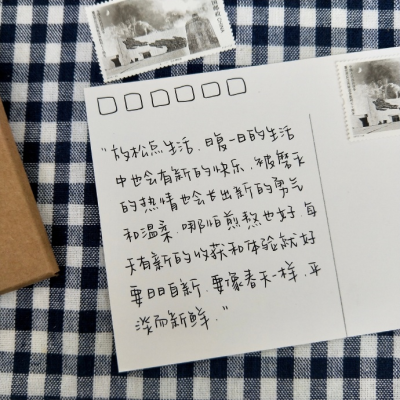 "放松点生活，日复一日的生活
中也会有新的快乐，被磨灭
的热情也会长出新的勇气
和温柔，哪怕煎熬也好，每
天有新的收获和体验就好
要日日自新，要像春天一样，平
淡而新鲜。"